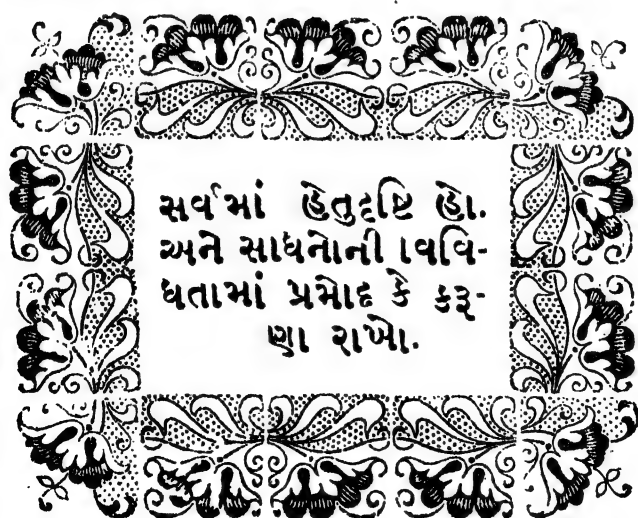 સર્વમાં હેતુદૃષ્ટિ હો.
અને સાધનોની વિવિ-
ધતામાં પ્રમોદ કે કરૂ-
ણા રાખો.